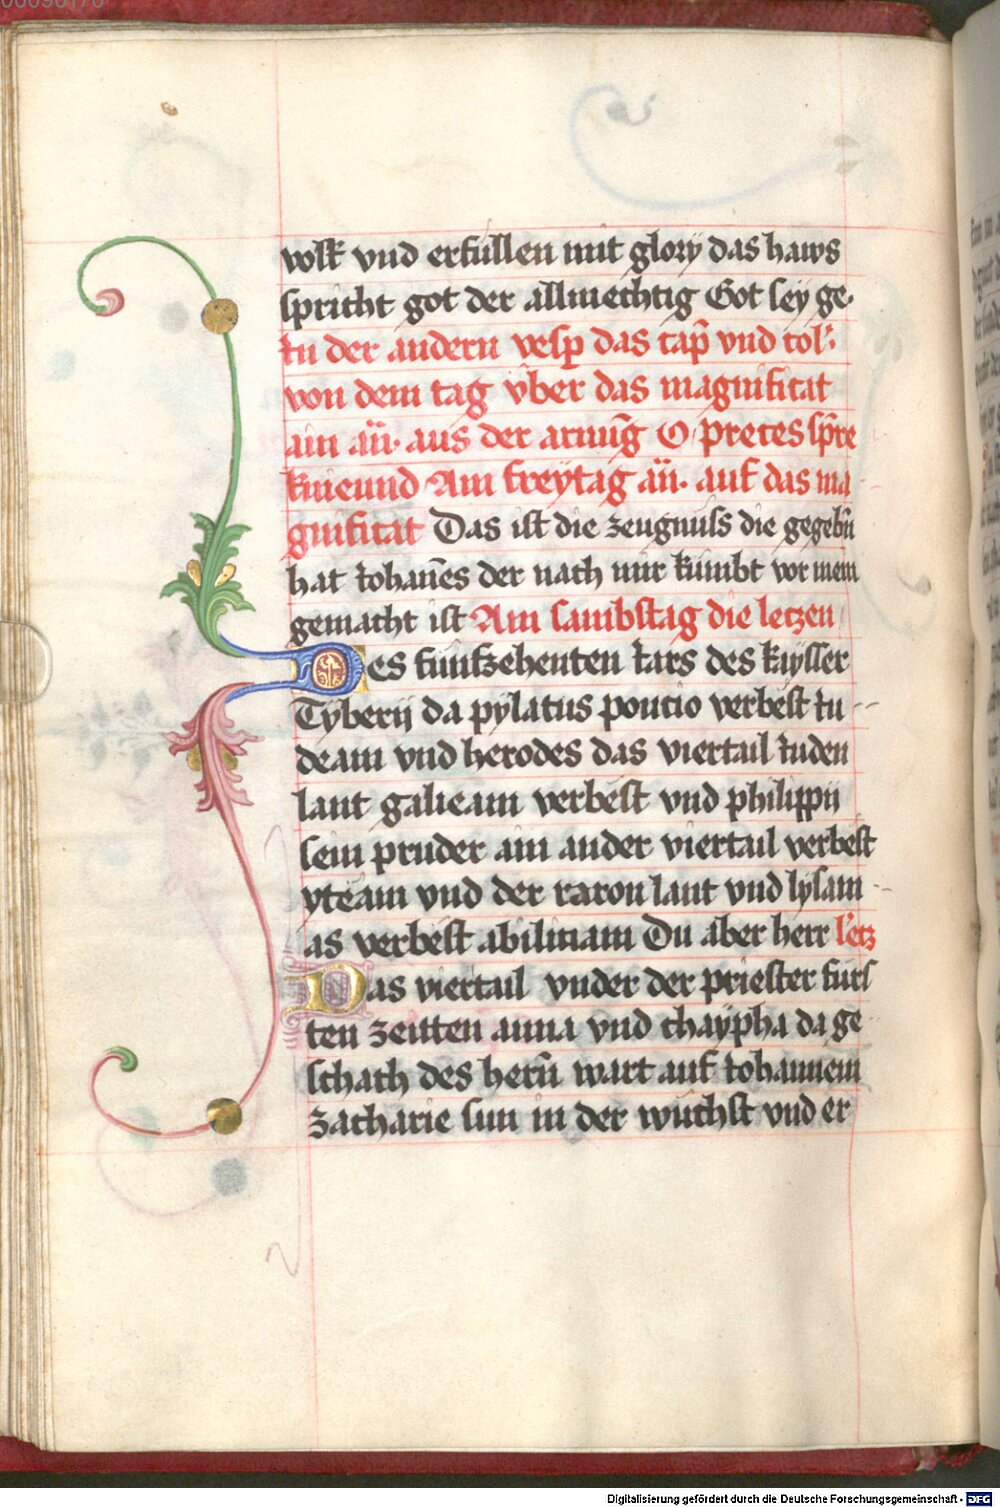 volk vnd erfullen mit glory das haws
spricht got der allmechtig Got sey ge·
In der andern vesp̄ das cap̄ vnd col̄·
von dem tag v̈ber das magnificat
ain an̄· aus der arnūg O pretes spr̄e
knieund Am freytag an̄· auf das ma
gnificat Das ist die zeugnuss die gegebn̄
hat Iohan̄es der nach mir kumbt vor mein
gemacht ist Am sambstag die letzen
Des funfzehenten Iars des kaysser
Tyberij da pylatus poncio verbest Iu
deam vnd herodes das viertail Iuden
lant galieam verbest vnd philippij
sein pruder ain ander viertail verbest
yteam vnd der raron lant vnd lysam
as verbest abilinam Du aber herr letz
Das viertail vnder der priester furs
ten zeitten anna vnd chaypha da ge
schach des hern̄ wart auf Iohannem
zacharie sun in der wuchst vnd er
Digitalisierung gefördert durch die Deutsche Forschungsgemeinschaft - DFG